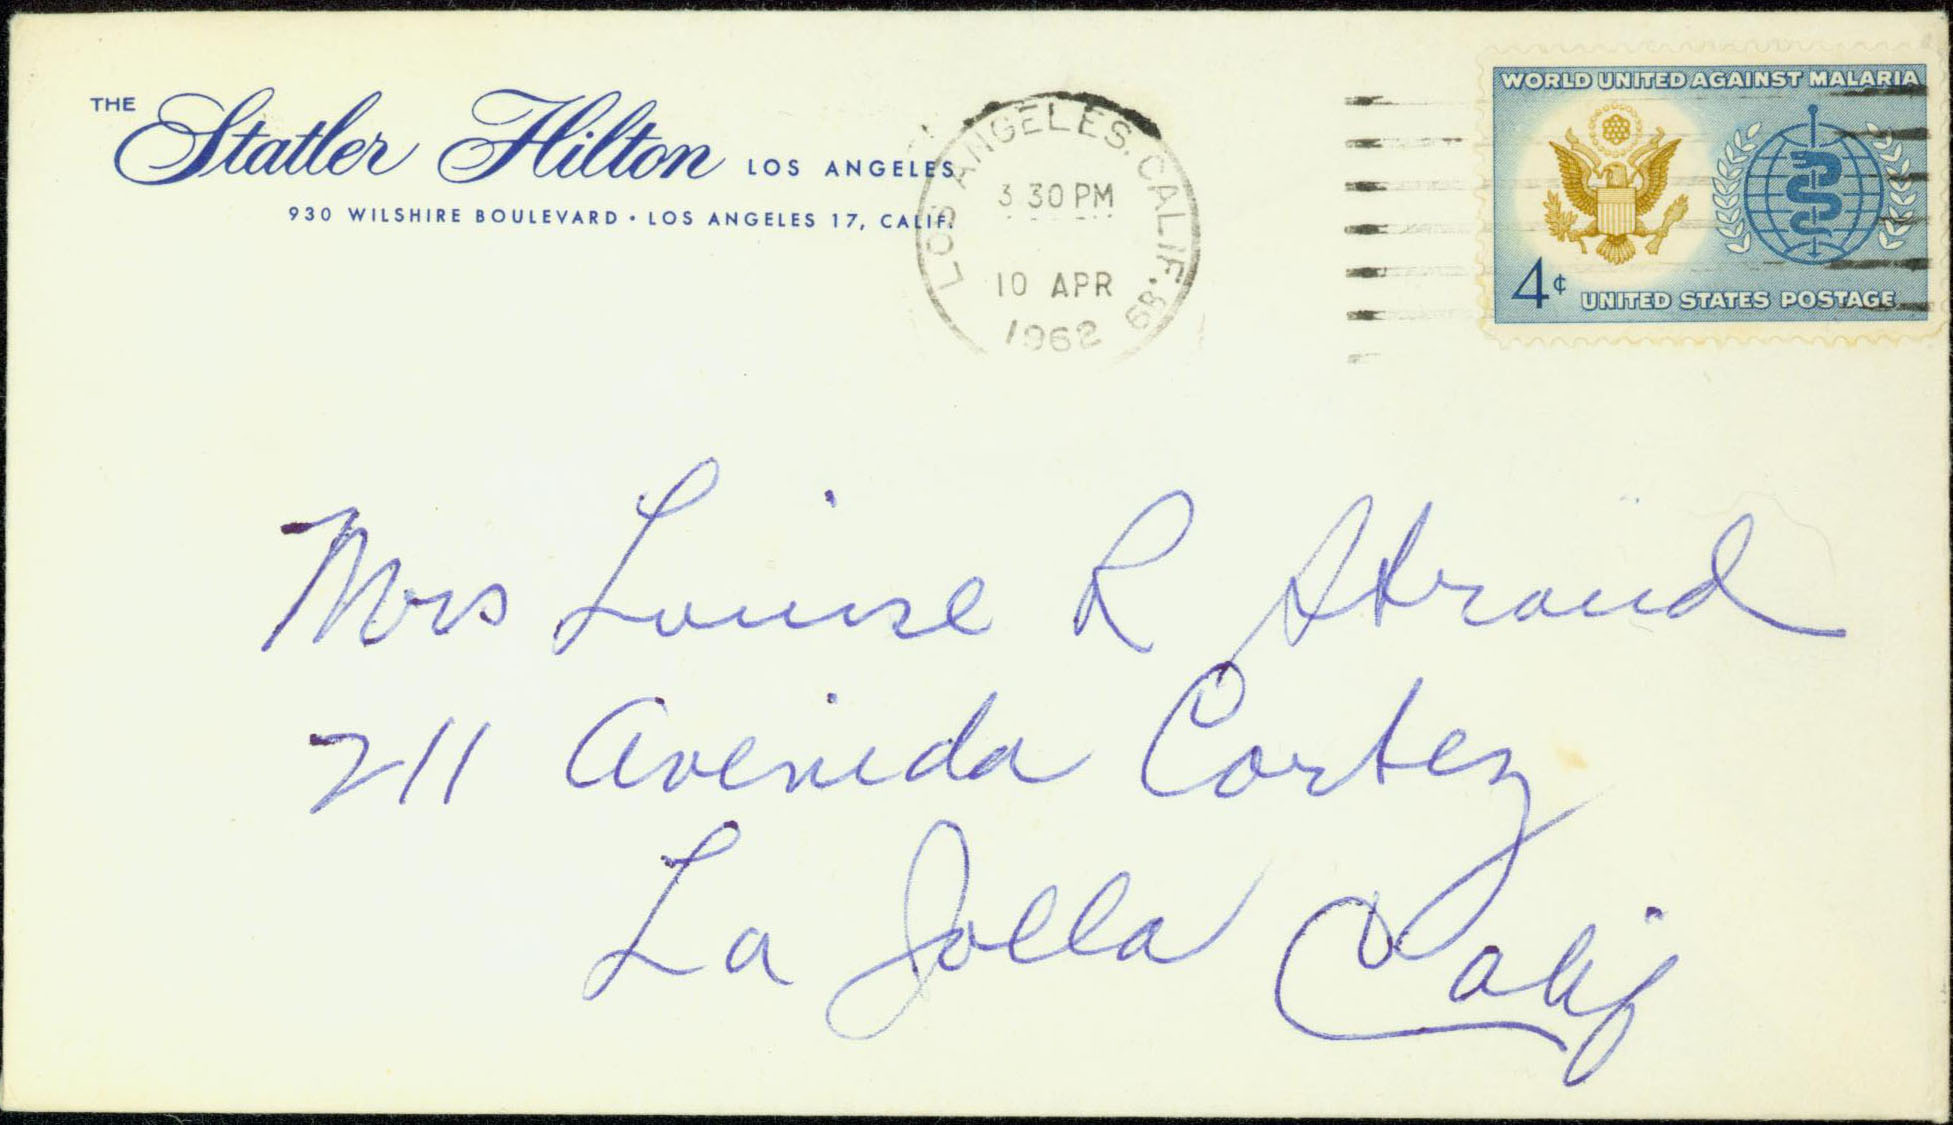 THE Statler Hilton LOS ANGELES
930 WILSHIRE BOULEVARD • LOS ANGELES 17, CALIF.
LOS ANGELES, CALIF. 6B
3 30 PM
10 APR
1962
WORLD UNITED AGAINST MALARIA
4¢ UNITED STATES POSTAGE
Mrs Louise R Stroud
711 Avenida Cortez
La Jolla Calif